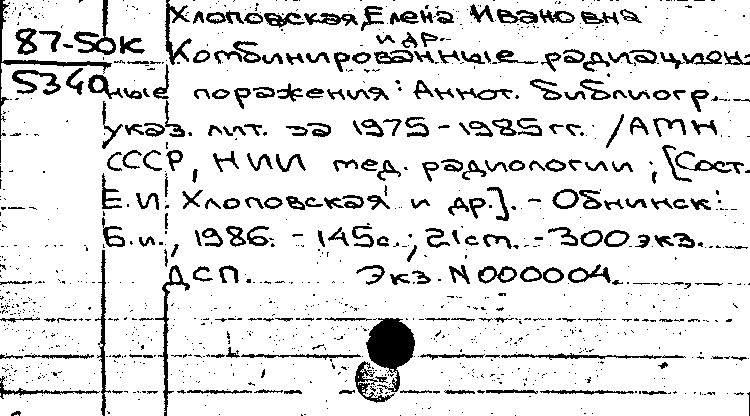 Хлоповская, Елена Ивановна
и др.
87-50к
5340
Комбинированные радиацион-
ные поражения: Аннот. библиогр.
указ. лит. за 1975-1985 гг. /АМН
СССР, НИИ мед. радиологии; [Сост.
Е.И. Хлоповская и др.]. - Обнинск:
Б.и., 1986. - 145с.; 21см. - 300 экз.
ДСП. Экз. N 000004.